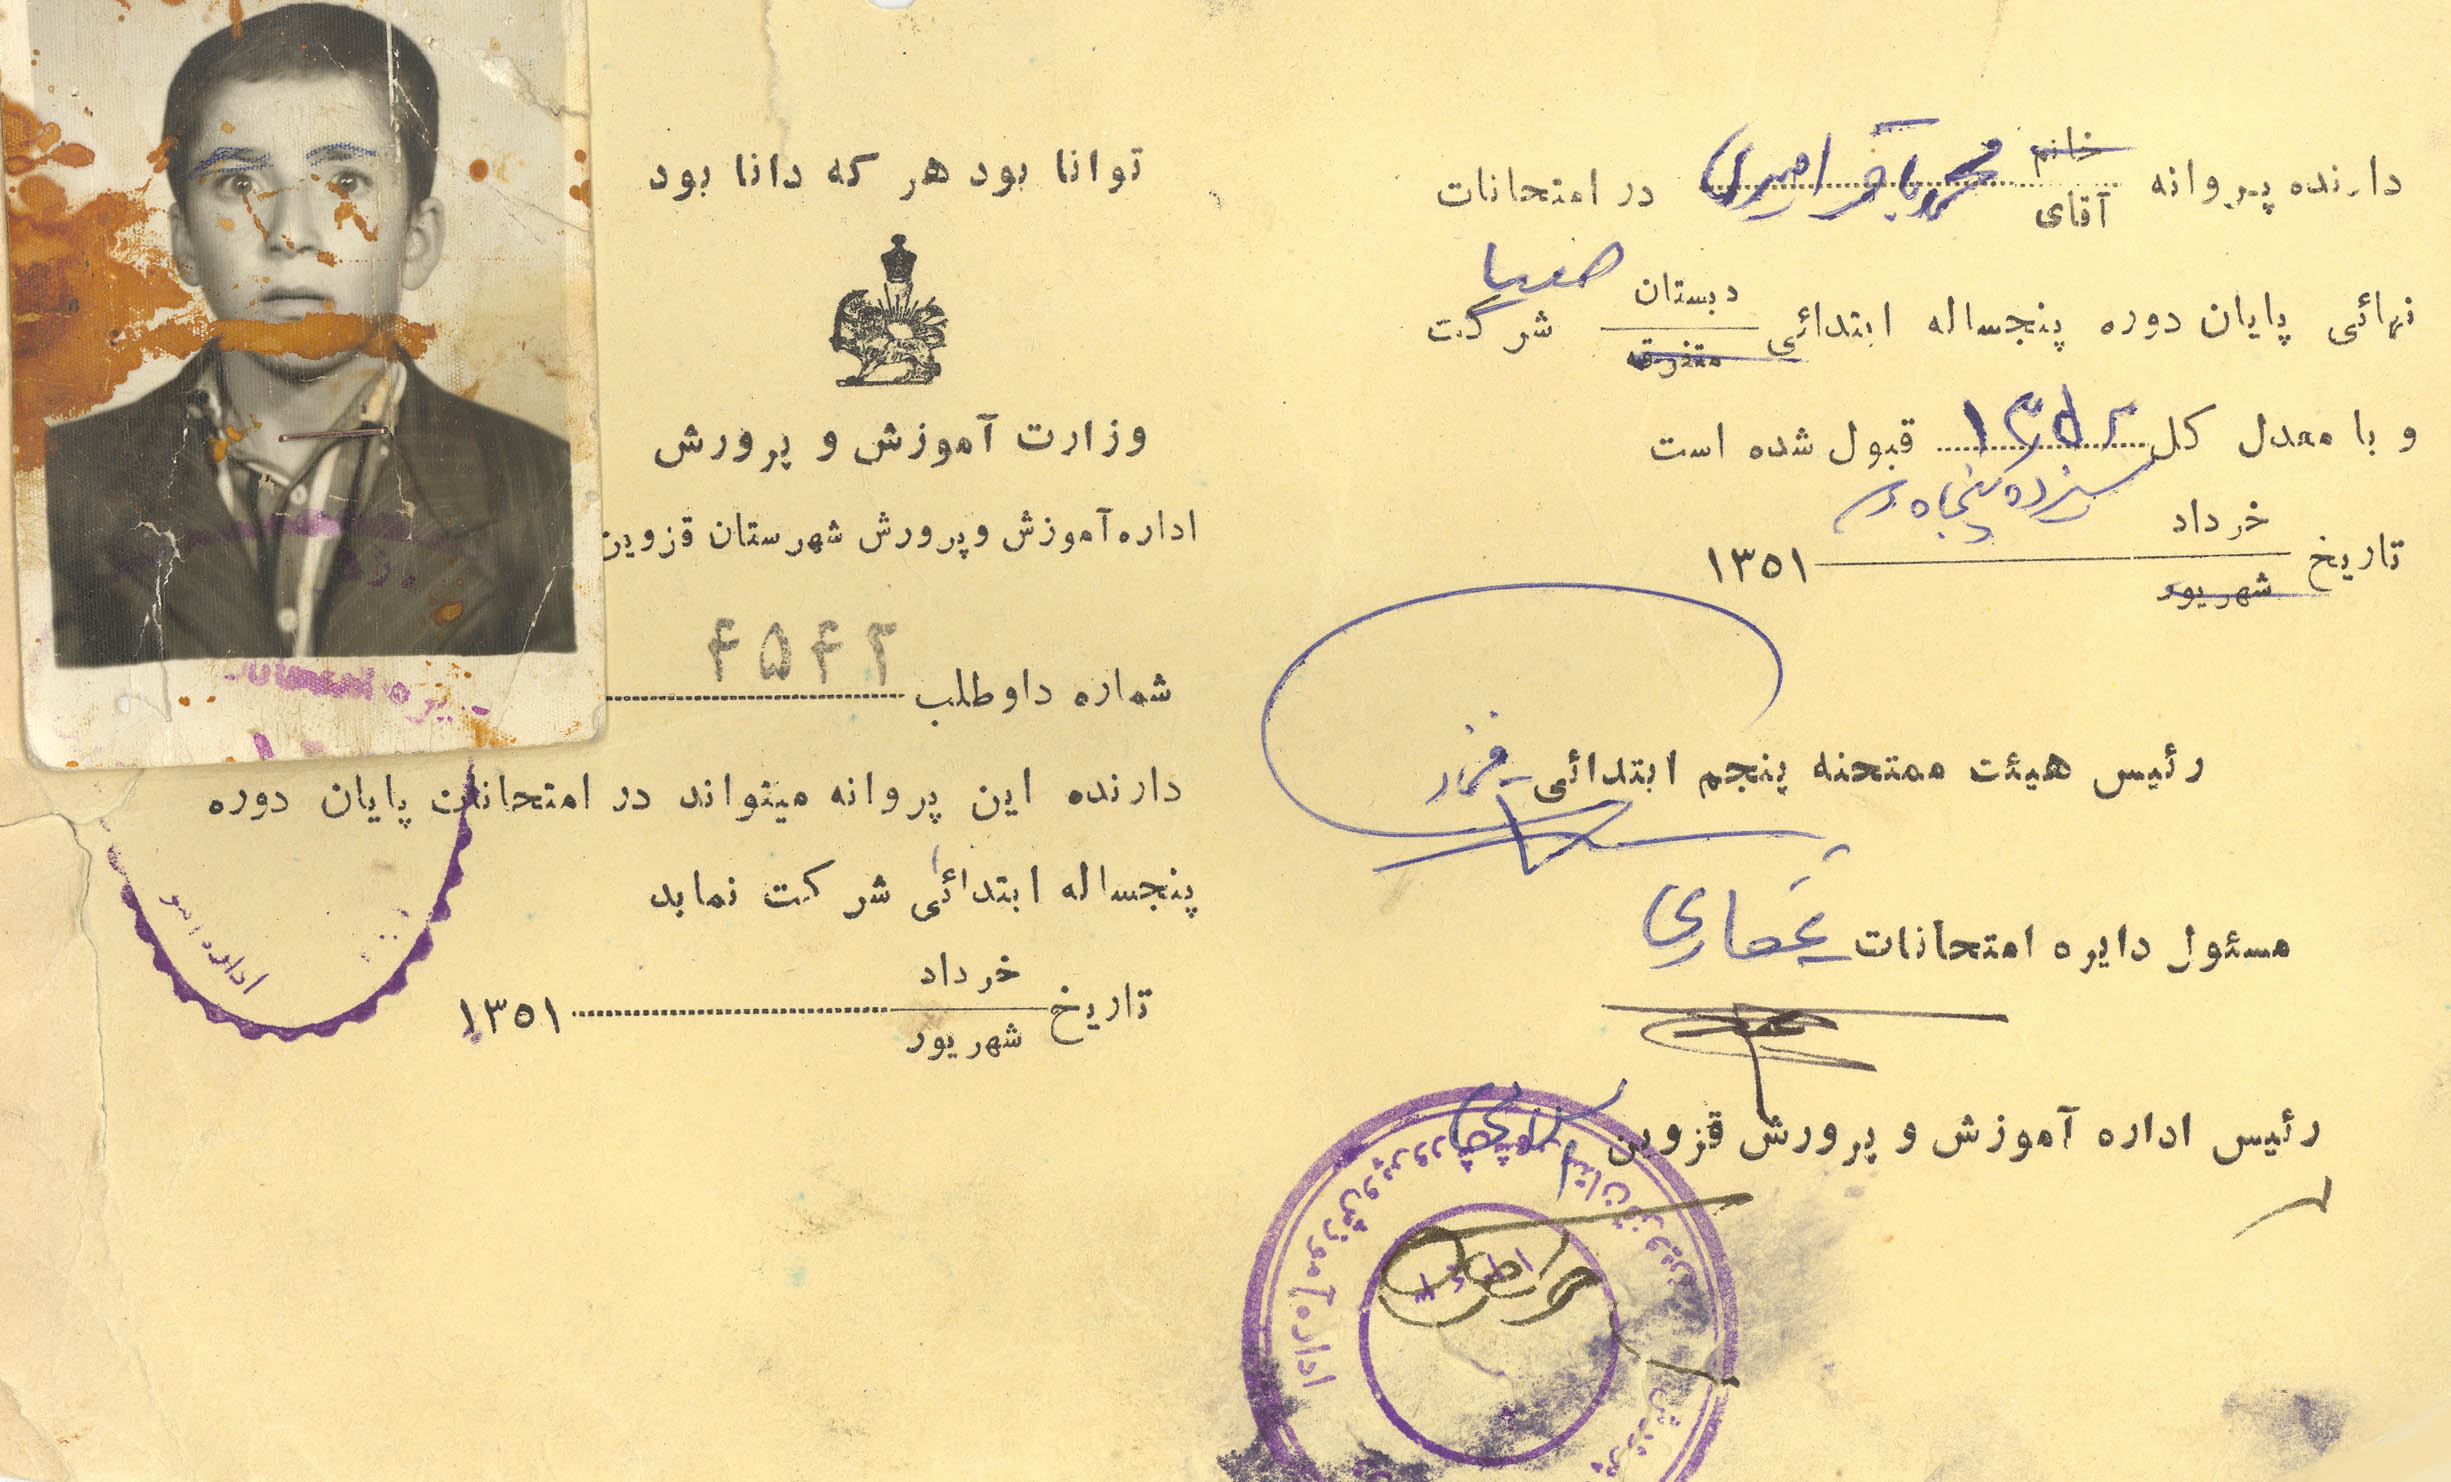 دارنده پروانه خانم آقای محمد باقر امیری در امتحانات
نهائی پایان دوره پنجساله ابتدائی دبستان متفرقه شرکت
و با معدل کل ۱۳/۵۲ قبول شده است
سیزده پنجاه
تاریخ خرداد شهریور ۱۳۵۱
رئیس هیئت ممتحنه پنجم ابتدائی
مسئول دایره امتحانات غفاری
رئیس اداره آموزش و پرورش قزوین
اداره آموزش و پرورش شهرستان قزوین
توانا بود هر که دانا بود
وزارت آموزش و پرورش
اداره آموزش و پرورش شهرستان قزوین
شماره داوطلب ۴۵۴۲
دارنده این پروانه میتواند در امتحانات پایان دوره
پنجساله ابتدائی شرکت نماید
تاریخ خرداد شهریور ۱۳۵۱